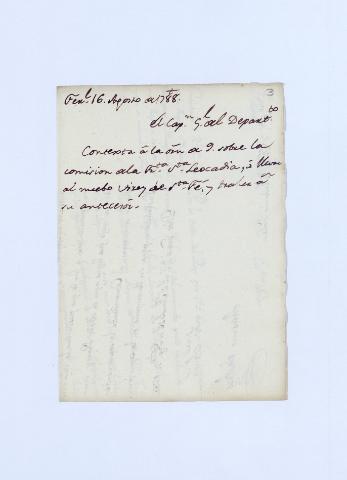 3
Ferl. 16. Agosto de 1788.
El Capn. Gl. del Departto
Contexta à la orn de 9. sobre la
comision de la Fta. Sta Leocadia, à llevar
al nuebo Virey de Sta Fé, y traher à
su antecesor.